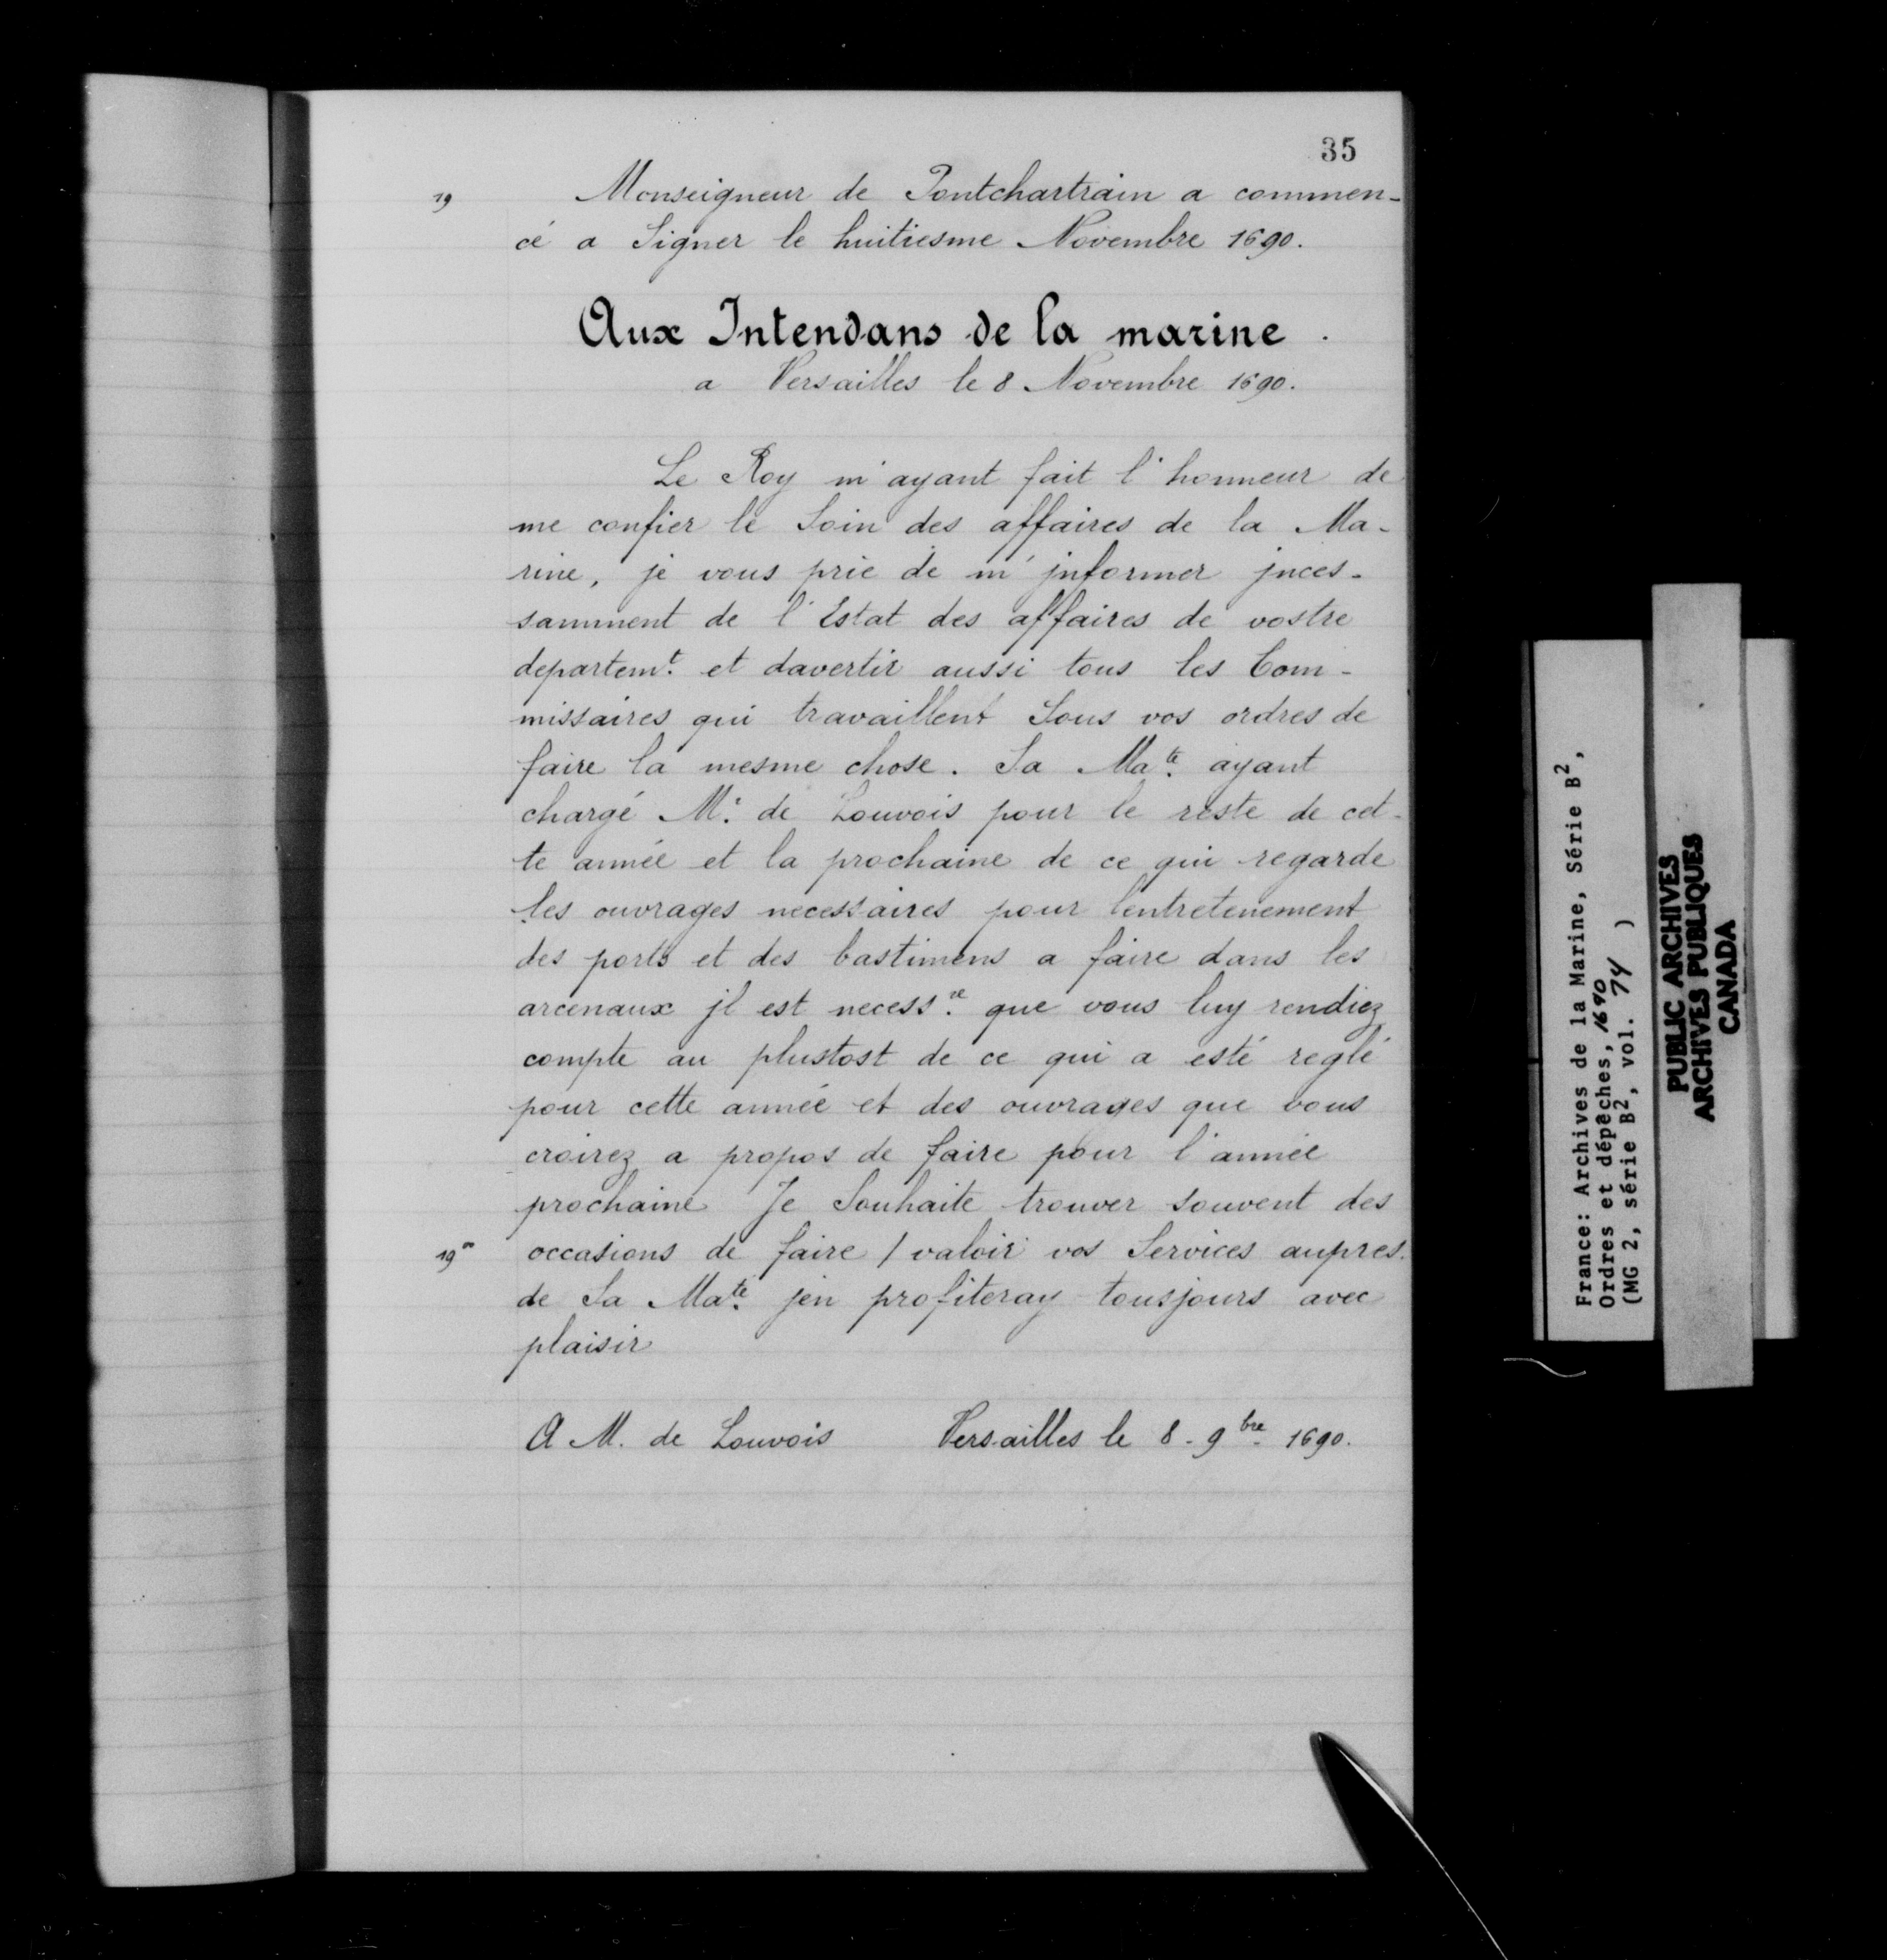 35
19 Monseigneur de Pontchartrain a commen-
cé a Signer le huitiesme Novembre 1690.
Aux Intendans de la marine.
a Versailles le 8 Novembre 1690.
Le Roy m'ayant fait l'honneur de
me confier le Soin des affaires de la Ma-
rine, je vous prie de m'jnformer jnces-
samment de l'Estat des affaires de vostre
departemt. et davertir aussi tous les Com-
missaires qui travaillent Sous vos ordres de
faire la mesme chose. Sa Mate. ayant
chargé Mr. de Louvois pour le reste de cet-
te année et la prochaine de ce qui regarde
les ouvrages necessaires pour lentretenement
des ports et des bastimens a faire dans les
arcenaux jl est necessre. que vous luy rendiez
compte au plustost de ce qui a esté reglé
pour cette année et des ouvrages que vous
croirez a propos de faire pour l'année
prochaine Je Souhaite trouver souvent des
19vo occasions de faire / valoir vos Services aupres
de Sa Mate. jen profiteray tousjours avec
plaisir
A M. de Louvois Versailles le 8. 9bre 1690.
France: Archives de la Marine, Série B2,
Ordres et dépêches, 1690
(MG 2, série B2, vol. 74 )
PUBLIC ARCHIVES
ARCHIVES PUBLIQUES
CANADA